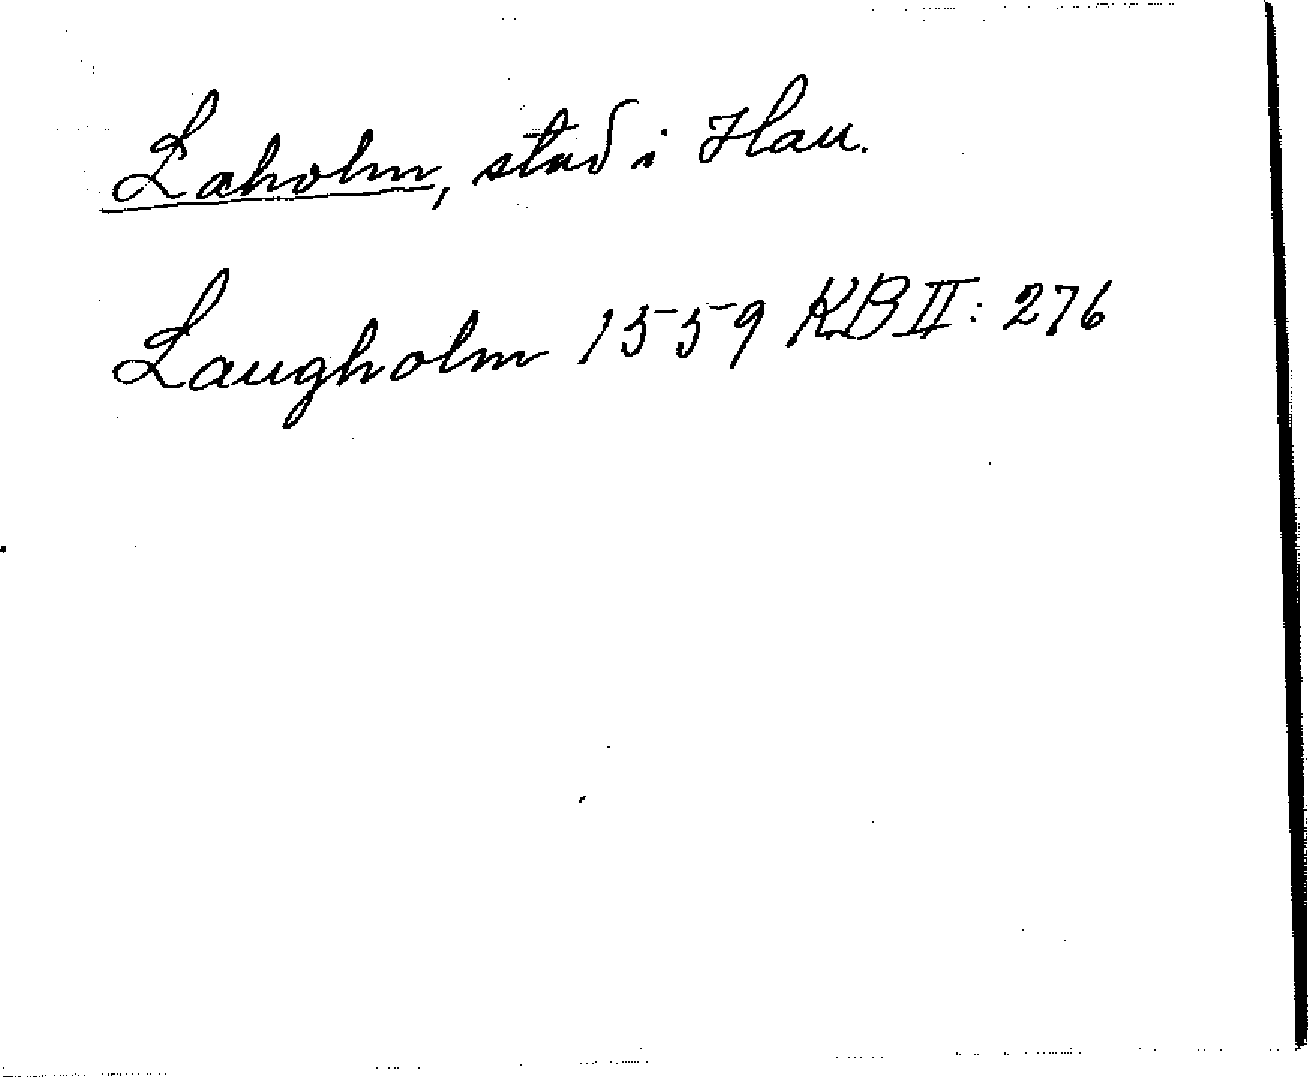 Laholm, stad i Hall.
Laugholm 1559 KB II: 276